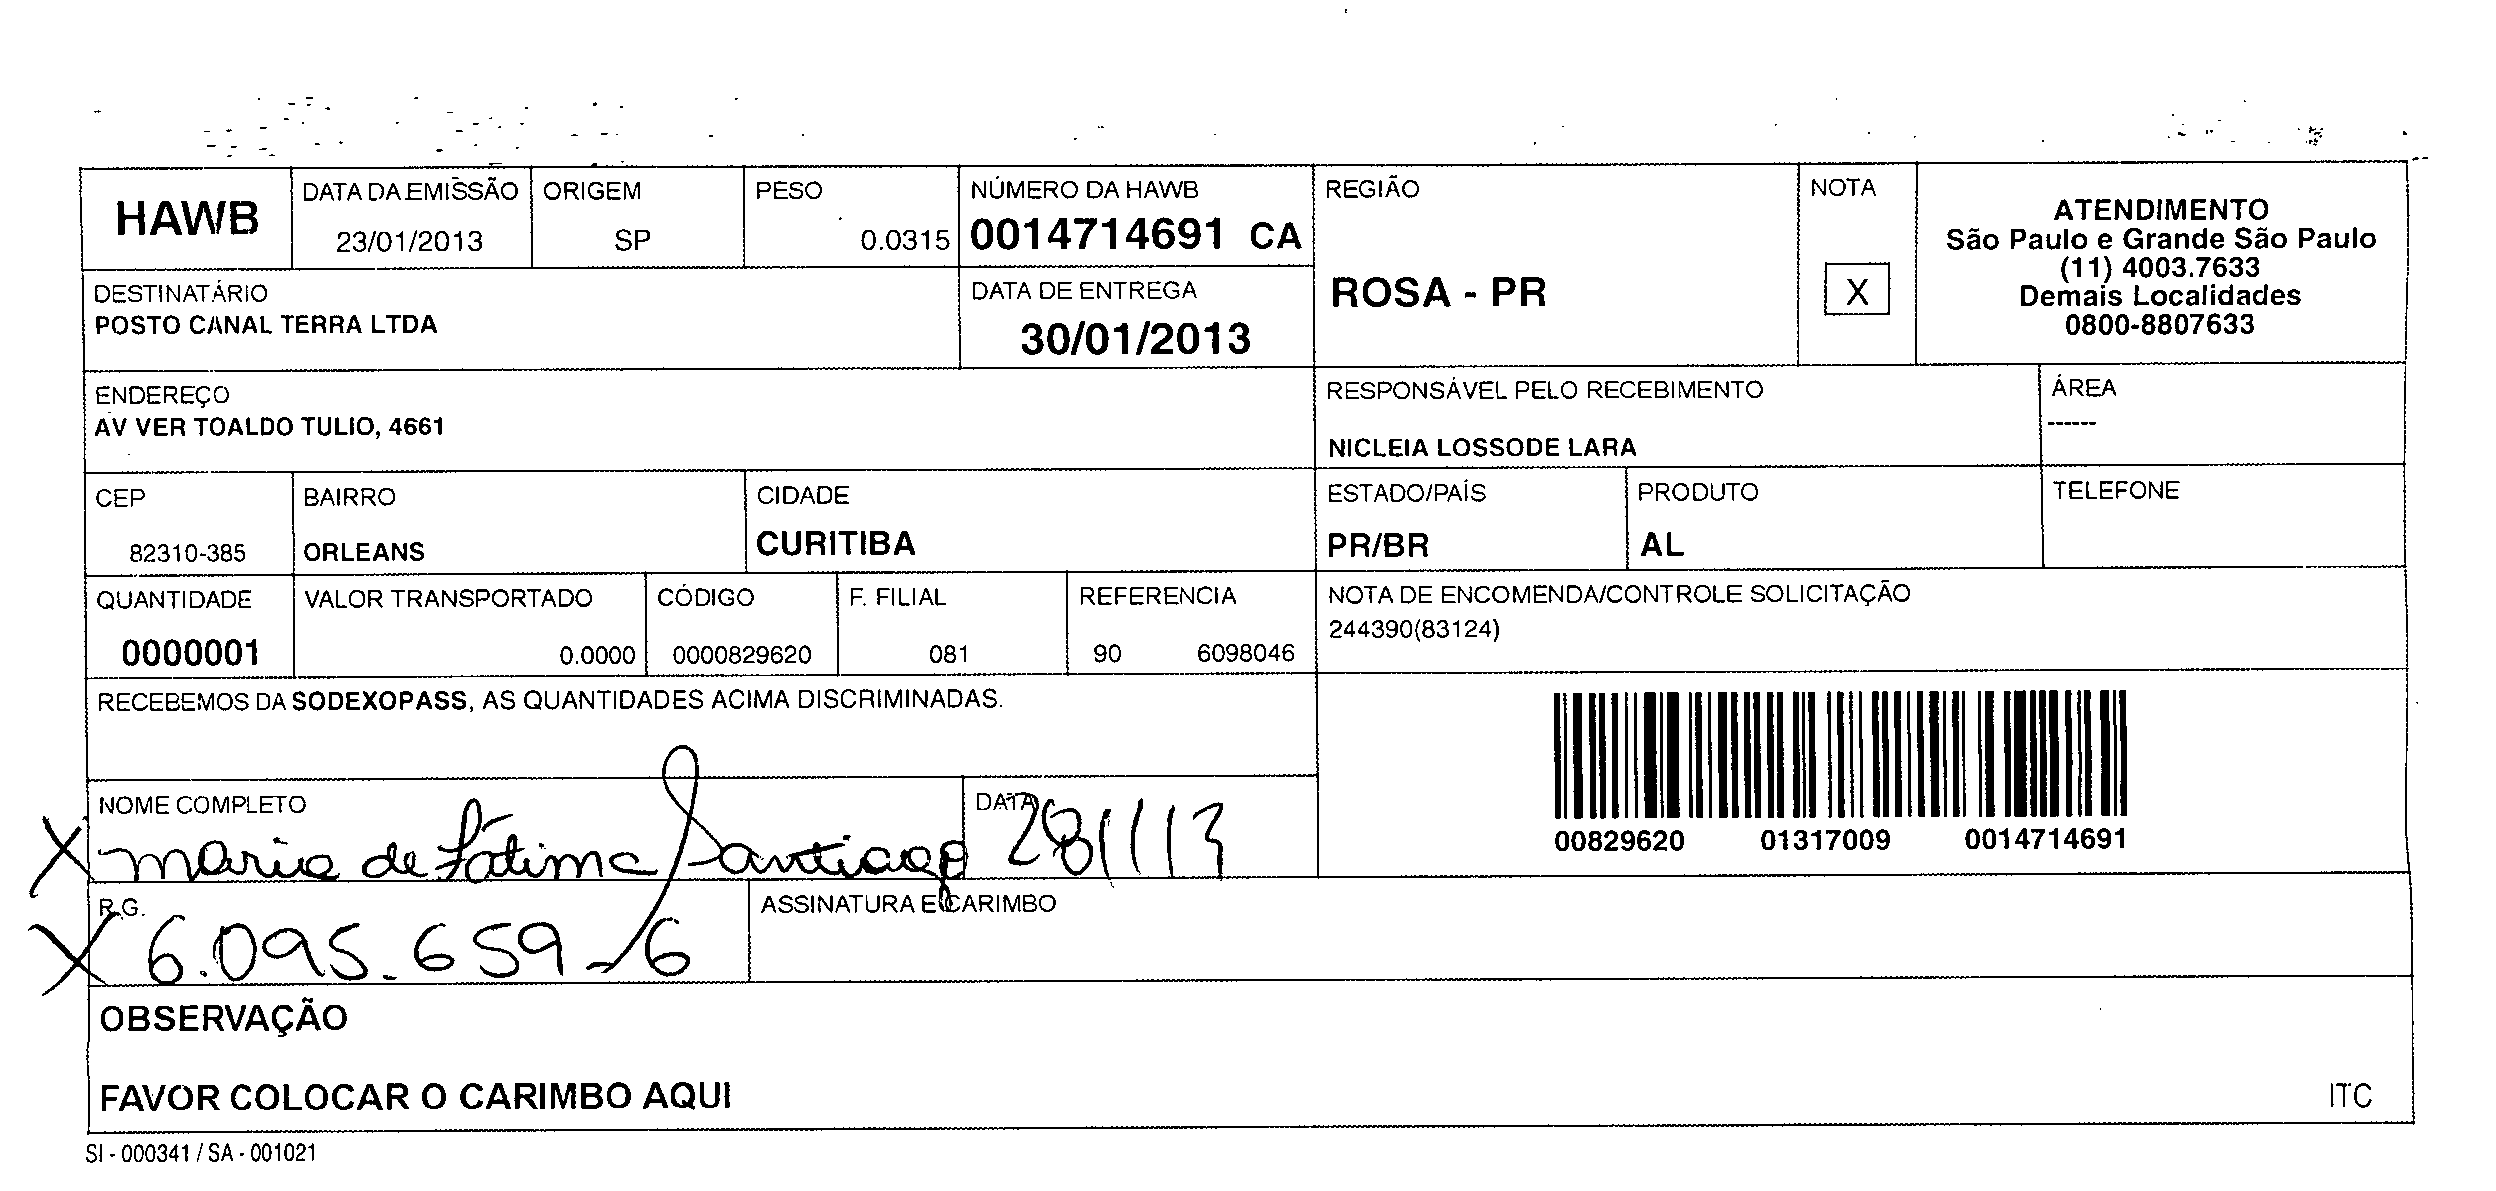 HAWB
DATA DA EMISSÃO
23/01/2013
ORIGEM
SP
PESO
0.0315
NÚMERO DA HAWB
0014714691 CA
REGIÃO
ROSA - PR
NOTA
X
ATENDIMENTO
São Paulo e Grande São Paulo
(11) 4003.7633
Demais Localidades
0800-8807633
DESTINATÁRIO
POSTO CANAL TERRA LTDA
DATA DE ENTREGA
30/01/2013
ENDEREÇO
AV VER TOALDO TULIO, 4661
RESPONSÁVEL PELO RECEBIMENTO
NICLEIA LOSSODE LARA
ÁREA
------
CEP
82310-385
BAIRRO
ORLEANS
CIDADE
CURITIBA
ESTADO/PAÍS
PR/BR
PRODUTO
AL
TELEFONE
QUANTIDADE
0000001
VALOR TRANSPORTADO
0.0000
CÓDIGO
0000829620
F. FILIAL
081
REFERENCIA
90 6098046
NOTA DE ENCOMENDA/CONTROLE SOLICITAÇÃO
244390(83124)
RECEBEMOS DA SODEXOPASS, AS QUANTIDADES ACIMA DISCRIMINADAS.
00829620 01317009 0014714691
NOME COMPLETO
X Maria de Fátima Santiago
DATA
28/1/13
R.G.
X 6.095.659-6
ASSINATURA E CARIMBO
OBSERVAÇÃO
FAVOR COLOCAR O CARIMBO AQUI
ITC
SI - 000341 / SA - 001021